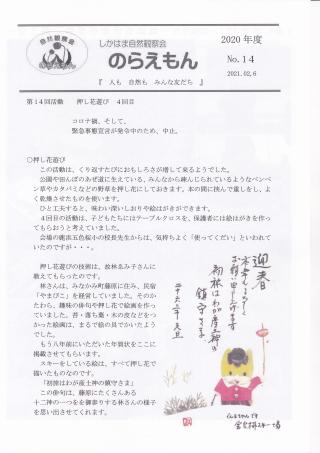 自然観察会
しかはま自然観察会
のらえもん
『 人も 自然も みんな友だち 』
2020年度
No.14
2021.02.6
第14回活動 押し花遊び 4回目
コロナ禍、そして、
緊急事態宣言が発令中のため、中止。
○押し花遊び
この活動は、くり返すたびにおもしろさが増して来るようでした。
公園や田んぼのあぜ道に生えている、みんなから疎んじられているようなペンペン
草やカタバミなどの野草を押し花にしておきます。本の間に挟んで重しをし、よ
く乾燥させたものを使います。
ひと工夫すると、味わい深いしおりや絵はがきができます。
4回目の活動は、子どもたちにはテーブルクロスを、保護者には絵はがきを作っ
てもらおうと考えていました。
会場の鹿浜五色桜小の校長先生からは、気持ちよく「使ってください」といわれて
いたのですが・・・。
押し花遊びの技術は、故林あみ子さんに
教えてもらったのです。
林さんは、みなかみ町藤原に住み、民宿
「やまびこ」を経営していました。そのか
たわら、趣味の俳句や押し花で絵画を作っ
ていました。苔・落ち葉・木の皮などをつ
かった絵画は、まるで絵の具でかいたよう
でした。
もう八年前にいただいた年賀状をここに
掲載させてもらいます。
スキーをしている絵は、すべて押し花で
描いたものなのです。
「初旅はわが産土神の鎮守さま」
この俳句は、藤原にたくさんある
十二神の一つをを御参りする林さんの様子
を思い出させてくれます。
迎春
本年もよろしく
お願い申し上げます
初旅はわが産土神の
鎮守さま
二十六年元旦